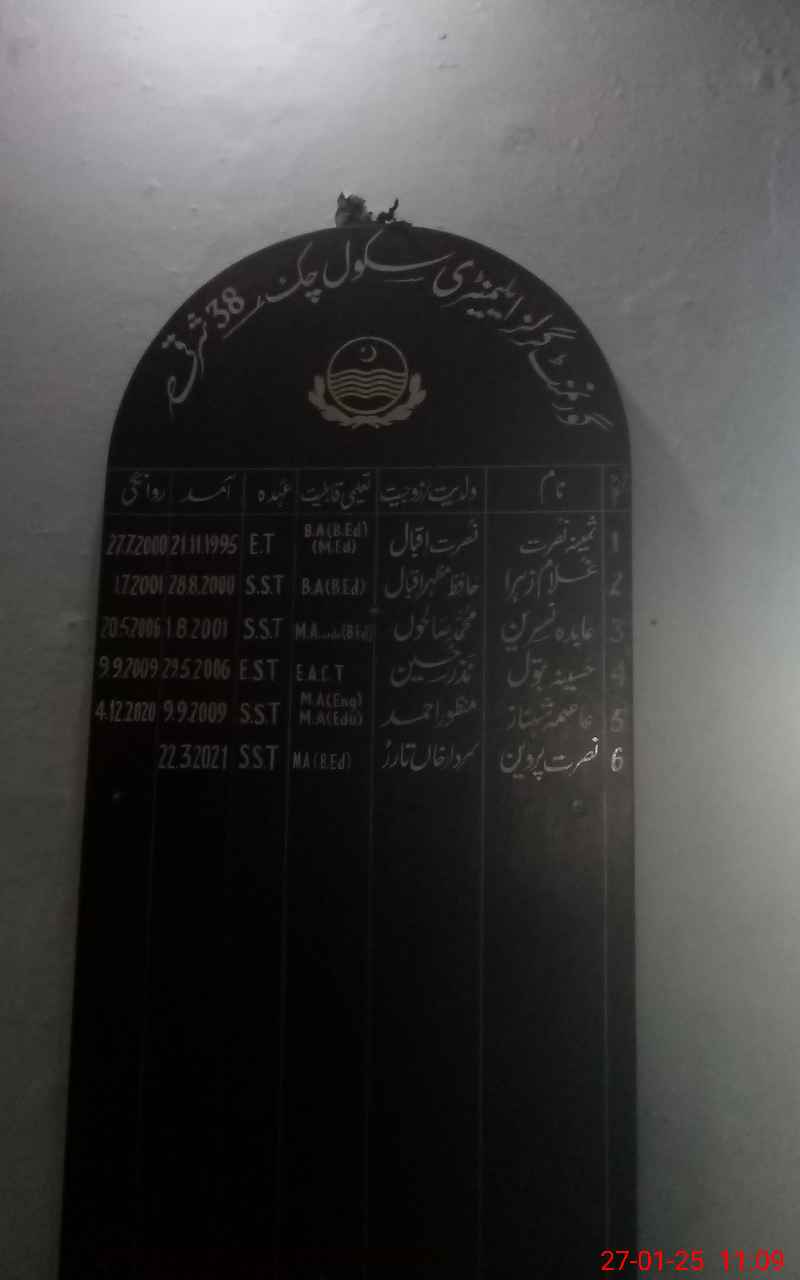 گورنمنٹ گرلز ایلیمنٹری سکول چک نمبر 38 شرقی
نام ولدیت/زوجیت تعلیمی قابلیت عہدہ آمد روانگی
1 ثمینہ نصرت نصرت اقبال B.A(B.Ed) (M.Ed) E.T 21.11.1995 27.7.2000
2 غلام زہرا حافظ مظہر اقبال B.A(B.Ed) S.S.T 28.8.2000 1.7.2001
3 عابدہ نسرین M.A (B.Ed) S.S.T 1.8.2001 20.5.2006
4 حسینہ بتول نذر حسین E.S.T 29.5.2006 9.9.2009
5 عاصمہ شہناز منظور احمد M.A(Eng) M.A(Edu) S.S.T 9.9.2009 4.12.2020
6 نصرت پروین سردار خاں تارڑ M.A(B.Ed) S.S.T 22.3.2021
27-01-25 11:09